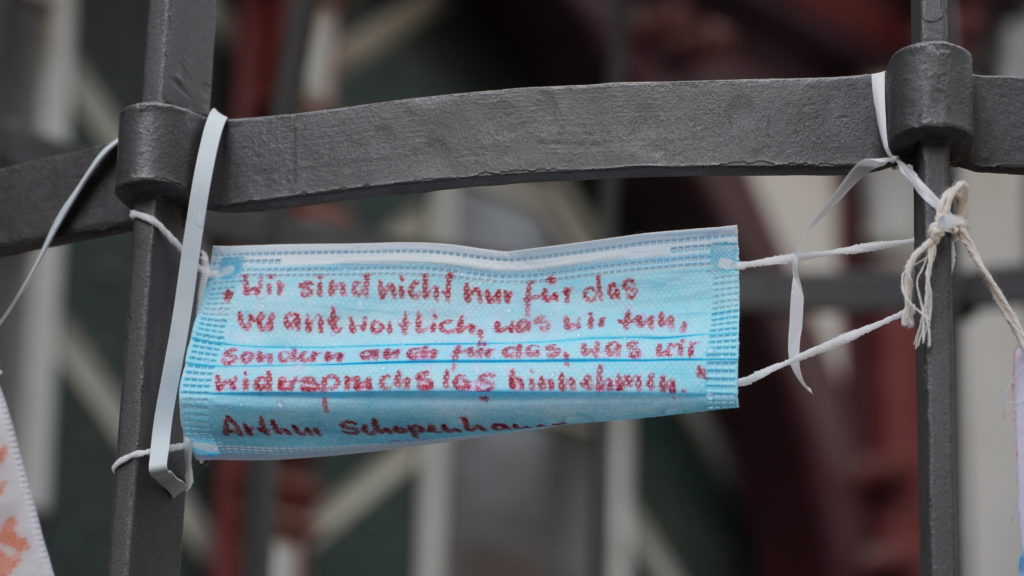 „Wir sind nicht nur für das
verantwortlich, was wir tun,
sondern auch für das, was wir
widerspruchslos hinnehmen."
Arthur Schopenhauer